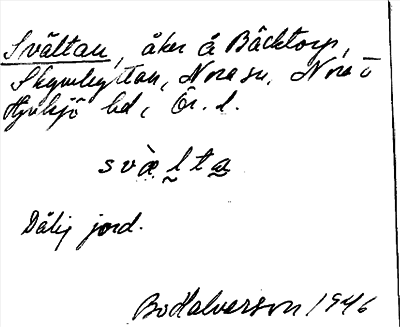 Svältan, åker å Bäcktorp,
Skymhyttan, Nora sn, Nora o
Hjulsjö bd, Ör. l.
svàl̰ta̰
Dålig jord.
Bo Halverson 1946